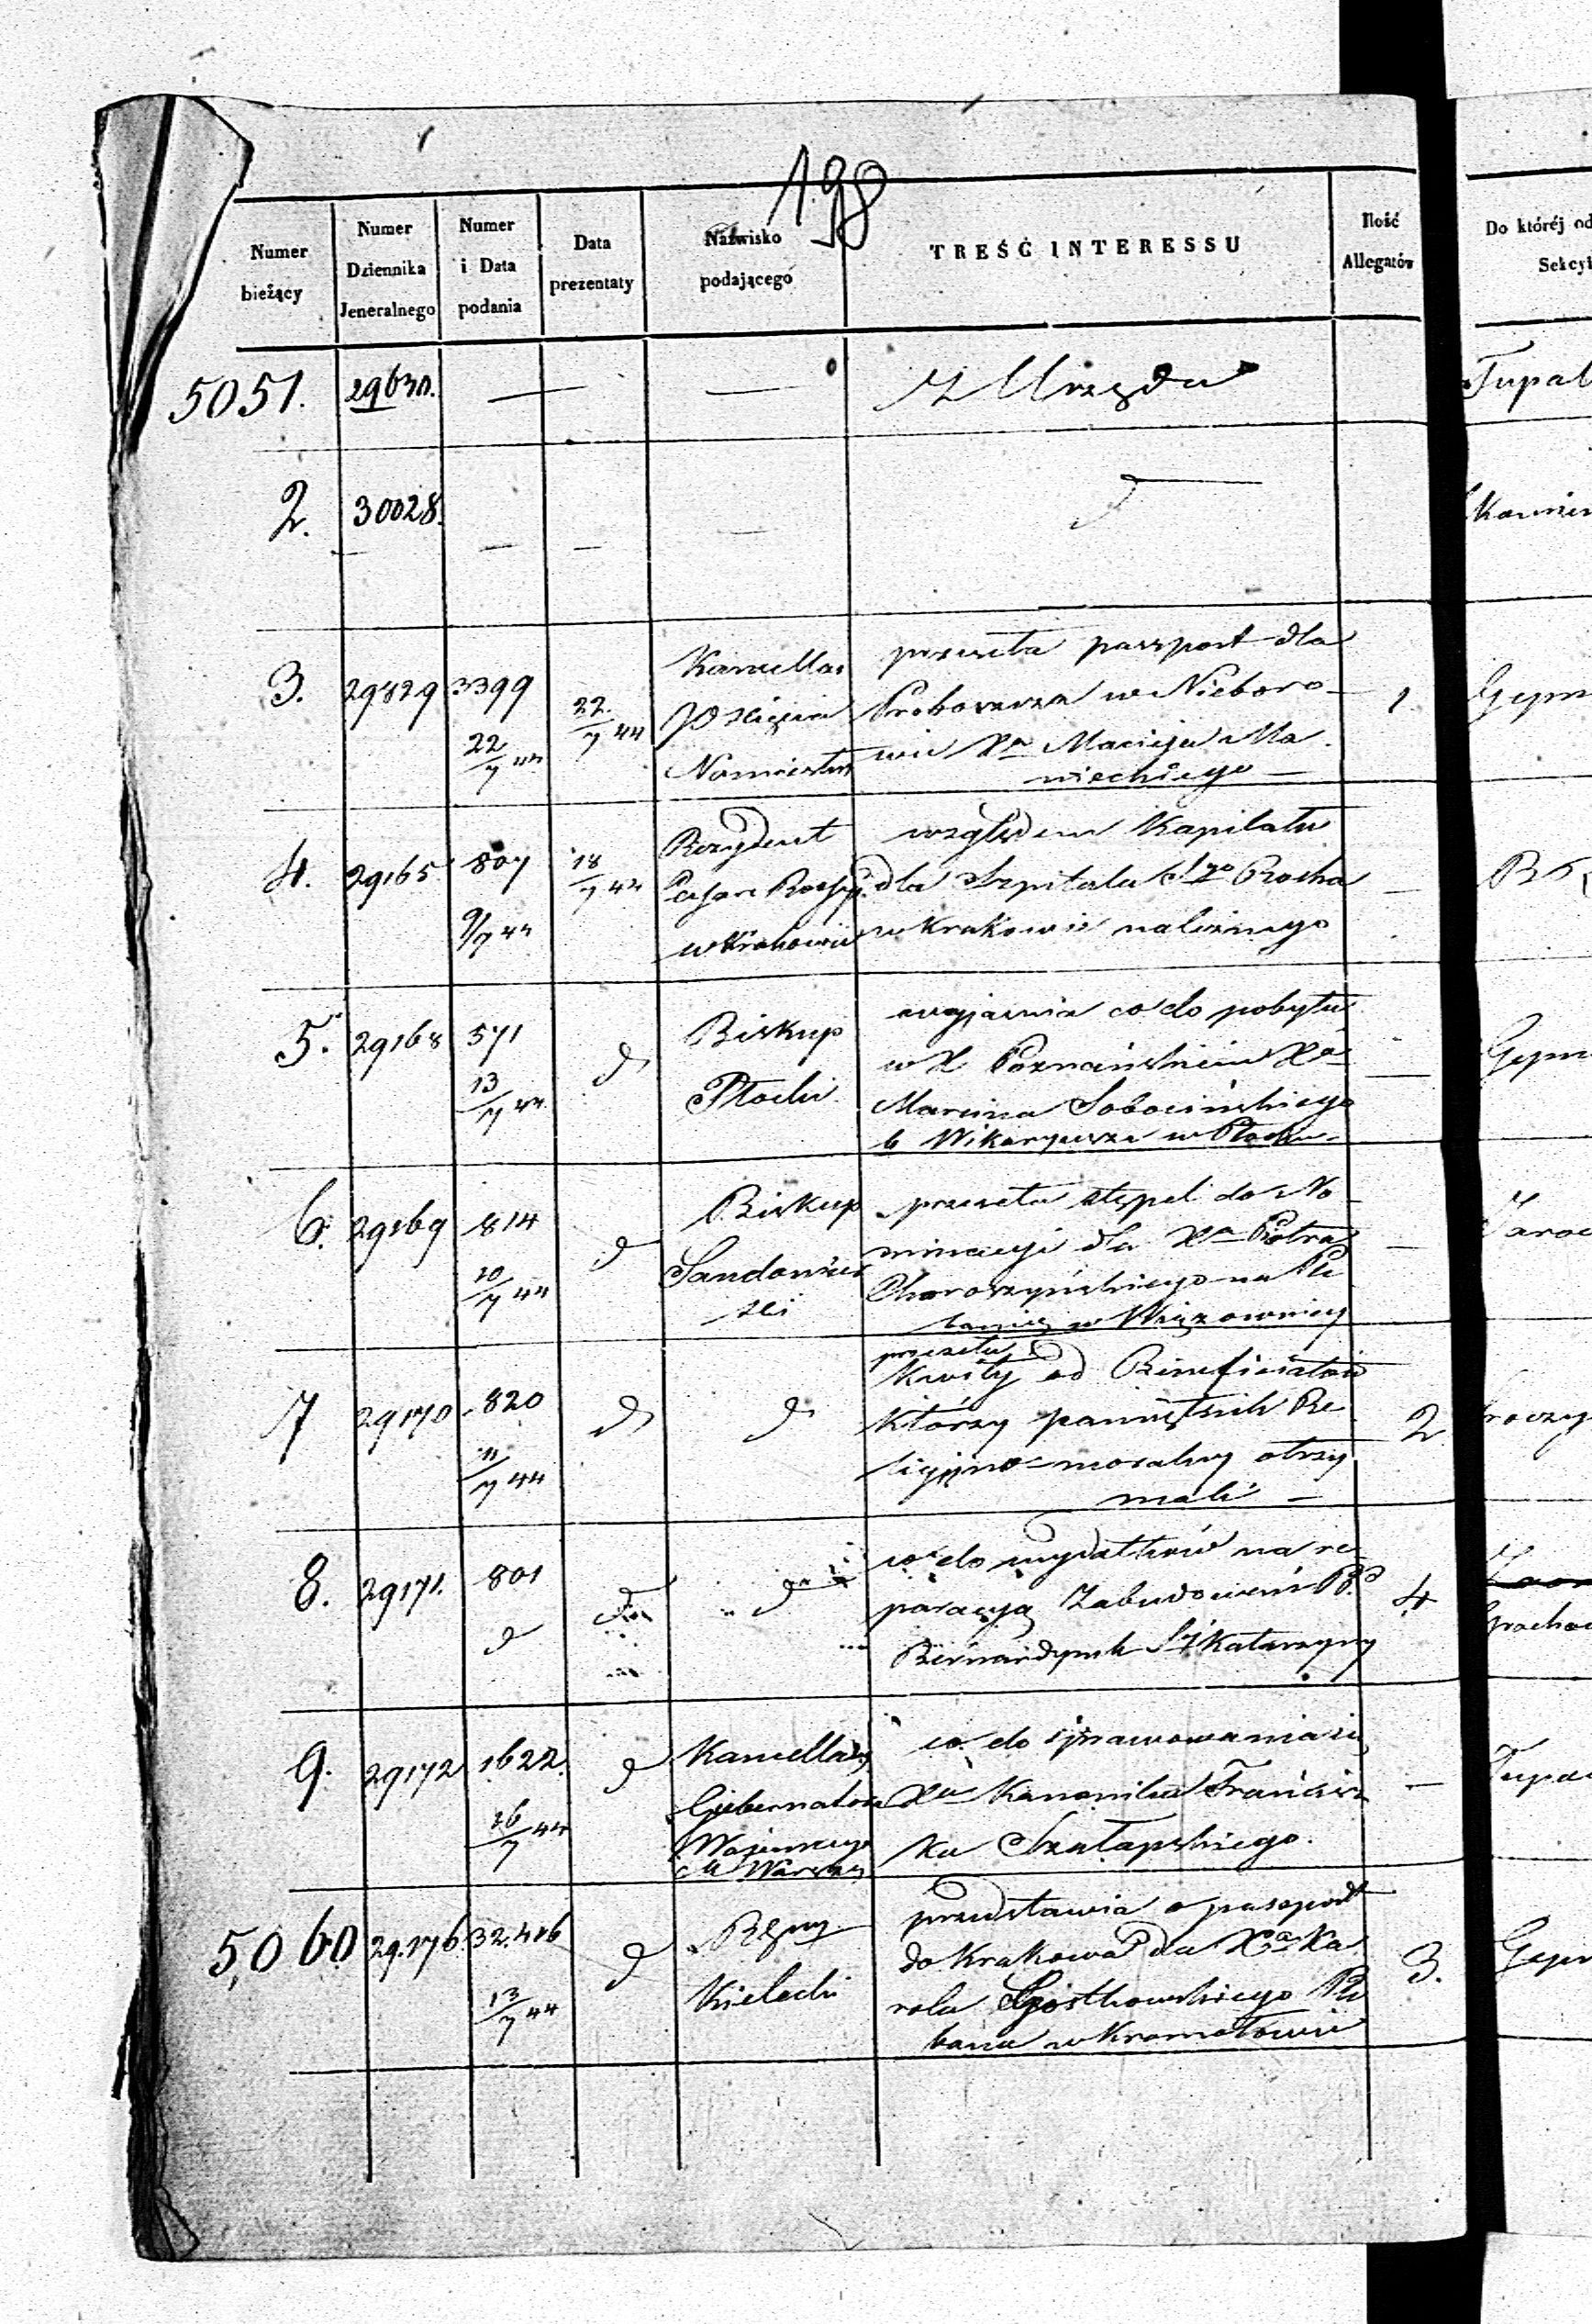 198
Numer bieżący
Numer Dziennika Jeneralnego
Numer i Data podania
Data prezentaty
Nazwisko podającego
TREŚĆ INTERESSU
Ilość Allegatów
Do któréj od
Sekcyi
5051. 29630. — — Z Urzędu
2. 30028. — — — d
3. 29829 3399 22/7 44 22/7 44
Kancellar
JO Xięcia
Namiestn
przeseła paszport dla
Proboszcza w Nieboro-
wie Xa Macieja Ma
nieckiego —
1.
4. 29165. 807 9/7 44 18/7 44
Rezydent
Cesars Rossyj.
w Krakowie
względem Kapitału
dla Szpitala Sgo Rocha
w Krakowie należnego
—
5. 29168 571 13/7 44 d
Biskup
Płocki
wyjaśnia co do pobytu
w X Poznańskiem Xa
Marcina Sobocińskiego
b Wikaryusza w Płocku
—
6. 29169 814 10/7 44 d
Biskup
Sandomier
ski
przeseła stępel do No
minacyi dla Xa Piotra
Choroszyńskiego na Ple
banię w Wiązownicy
—
7 29170 820 11/7 44 d d
przeseła
Kwity od Beneficiatów
którzy pamiętnik Re
ligijno-moralny otrzy
mali —
2
8. 29171. 801 d d d
co do wydatków na re
paracyą Zabudowań PP.
Bernardynek S Katarzyny
4
9. 29172 1622. 16/7 44 d
Kancellary
Gubernatora
Wojennego
M Warszawy
co do sprawowania się
Xa Kanonika Francisz
ka Szałapskiego.
—
5,060 29.176. 32.416 13/7 44 d
Rząd Gny
Kielecki
przedstawia o passport
do Krakowa dla Xa Ka
rola Gostkowskiego Ple
bana w Kromołowie
3.